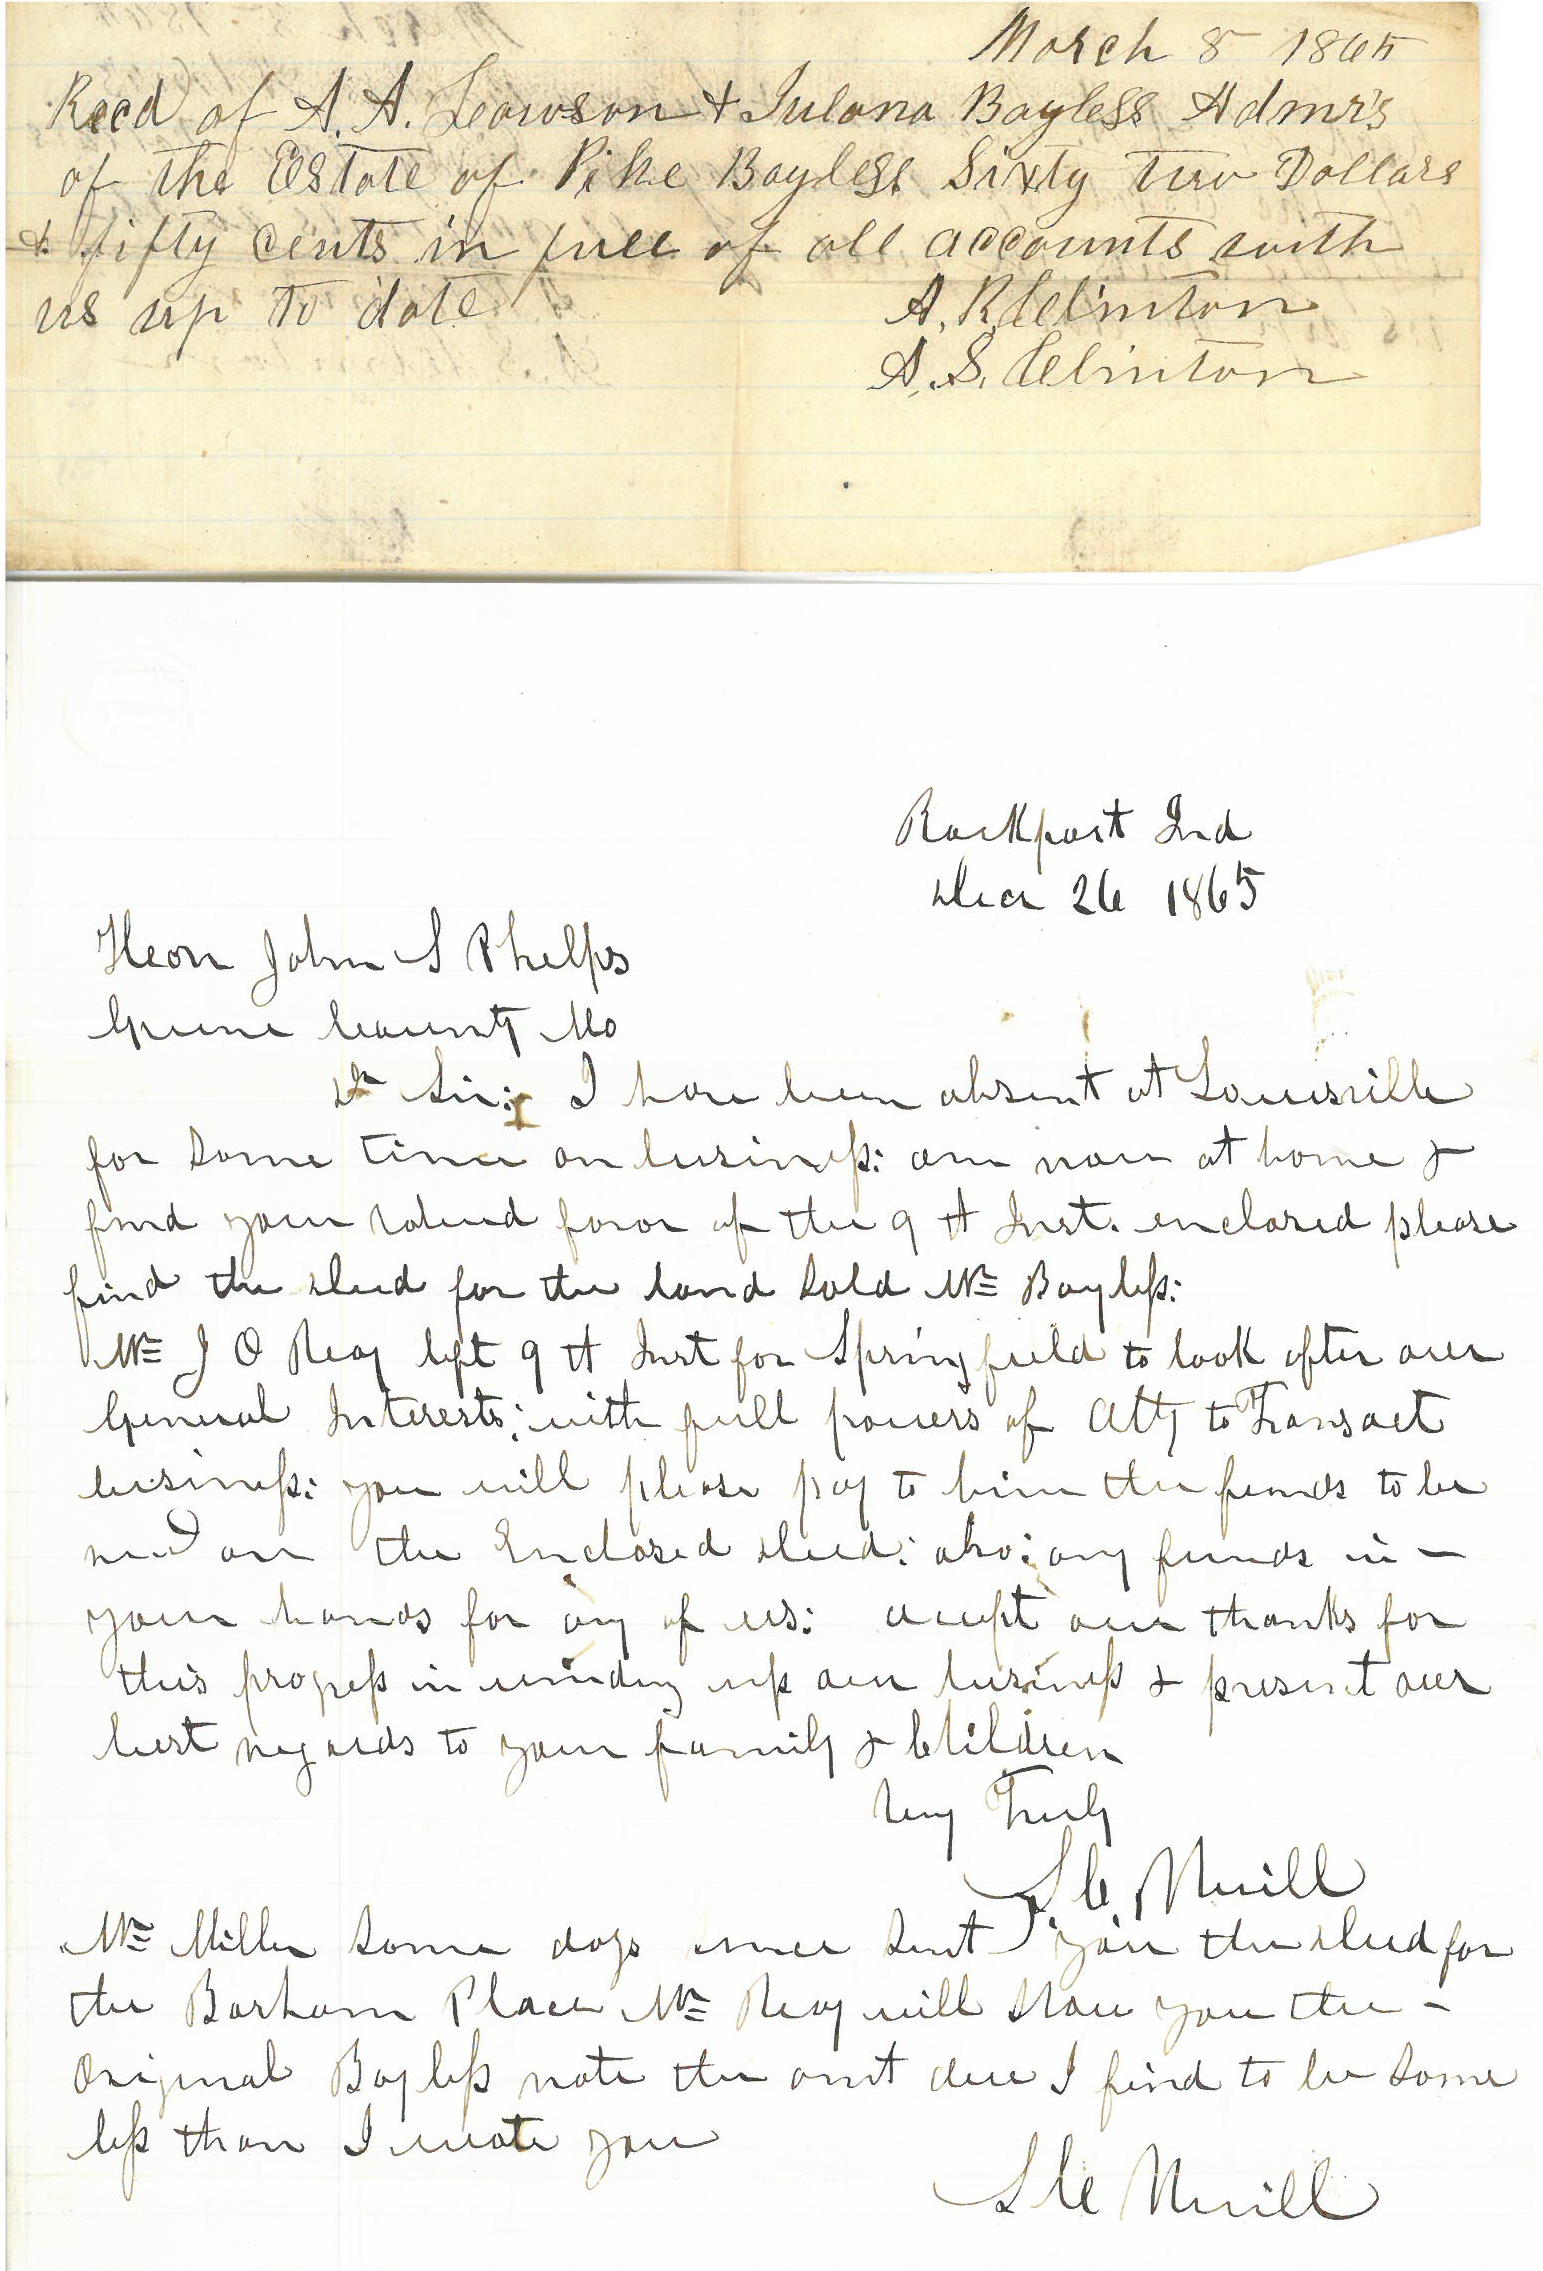 March 8 1865
Recd of A. A. Lawson & Julana Bayless Admrs
of the Estate of Pike Bayless Sixty two Dollars
& fifty cents in full of all accounts with
us up to date
A. R. Clinton
A. S. Clinton
Rockport Ind
Dec 26 1865
Hon John S Phelps
Greene County Mo
Dr Sir: I have been absent at Louisville
for some time on business: am now at home &
find your valued favor of the 9th Inst. enclosed please
find the deed for the land sold Mr Bayless:
Mr J O Reay left 9th Inst for Springfield to look after our
General Interests; with full powers of Atty to Transact
business: you will please pay to him the funds to be
recd on the Enclosed deed: also: any funds in –
your hands for any of us: accept our thanks for
this progress in winding up our business & present our
best regards to your family & Children
Very Truly
S C Nevill
Mr Miller some days since sent you the deed for
the Barham Place Mr Reay will show you the –
Original Bayless note the amt due I find to be some
less than I wrote you
S C Nevill